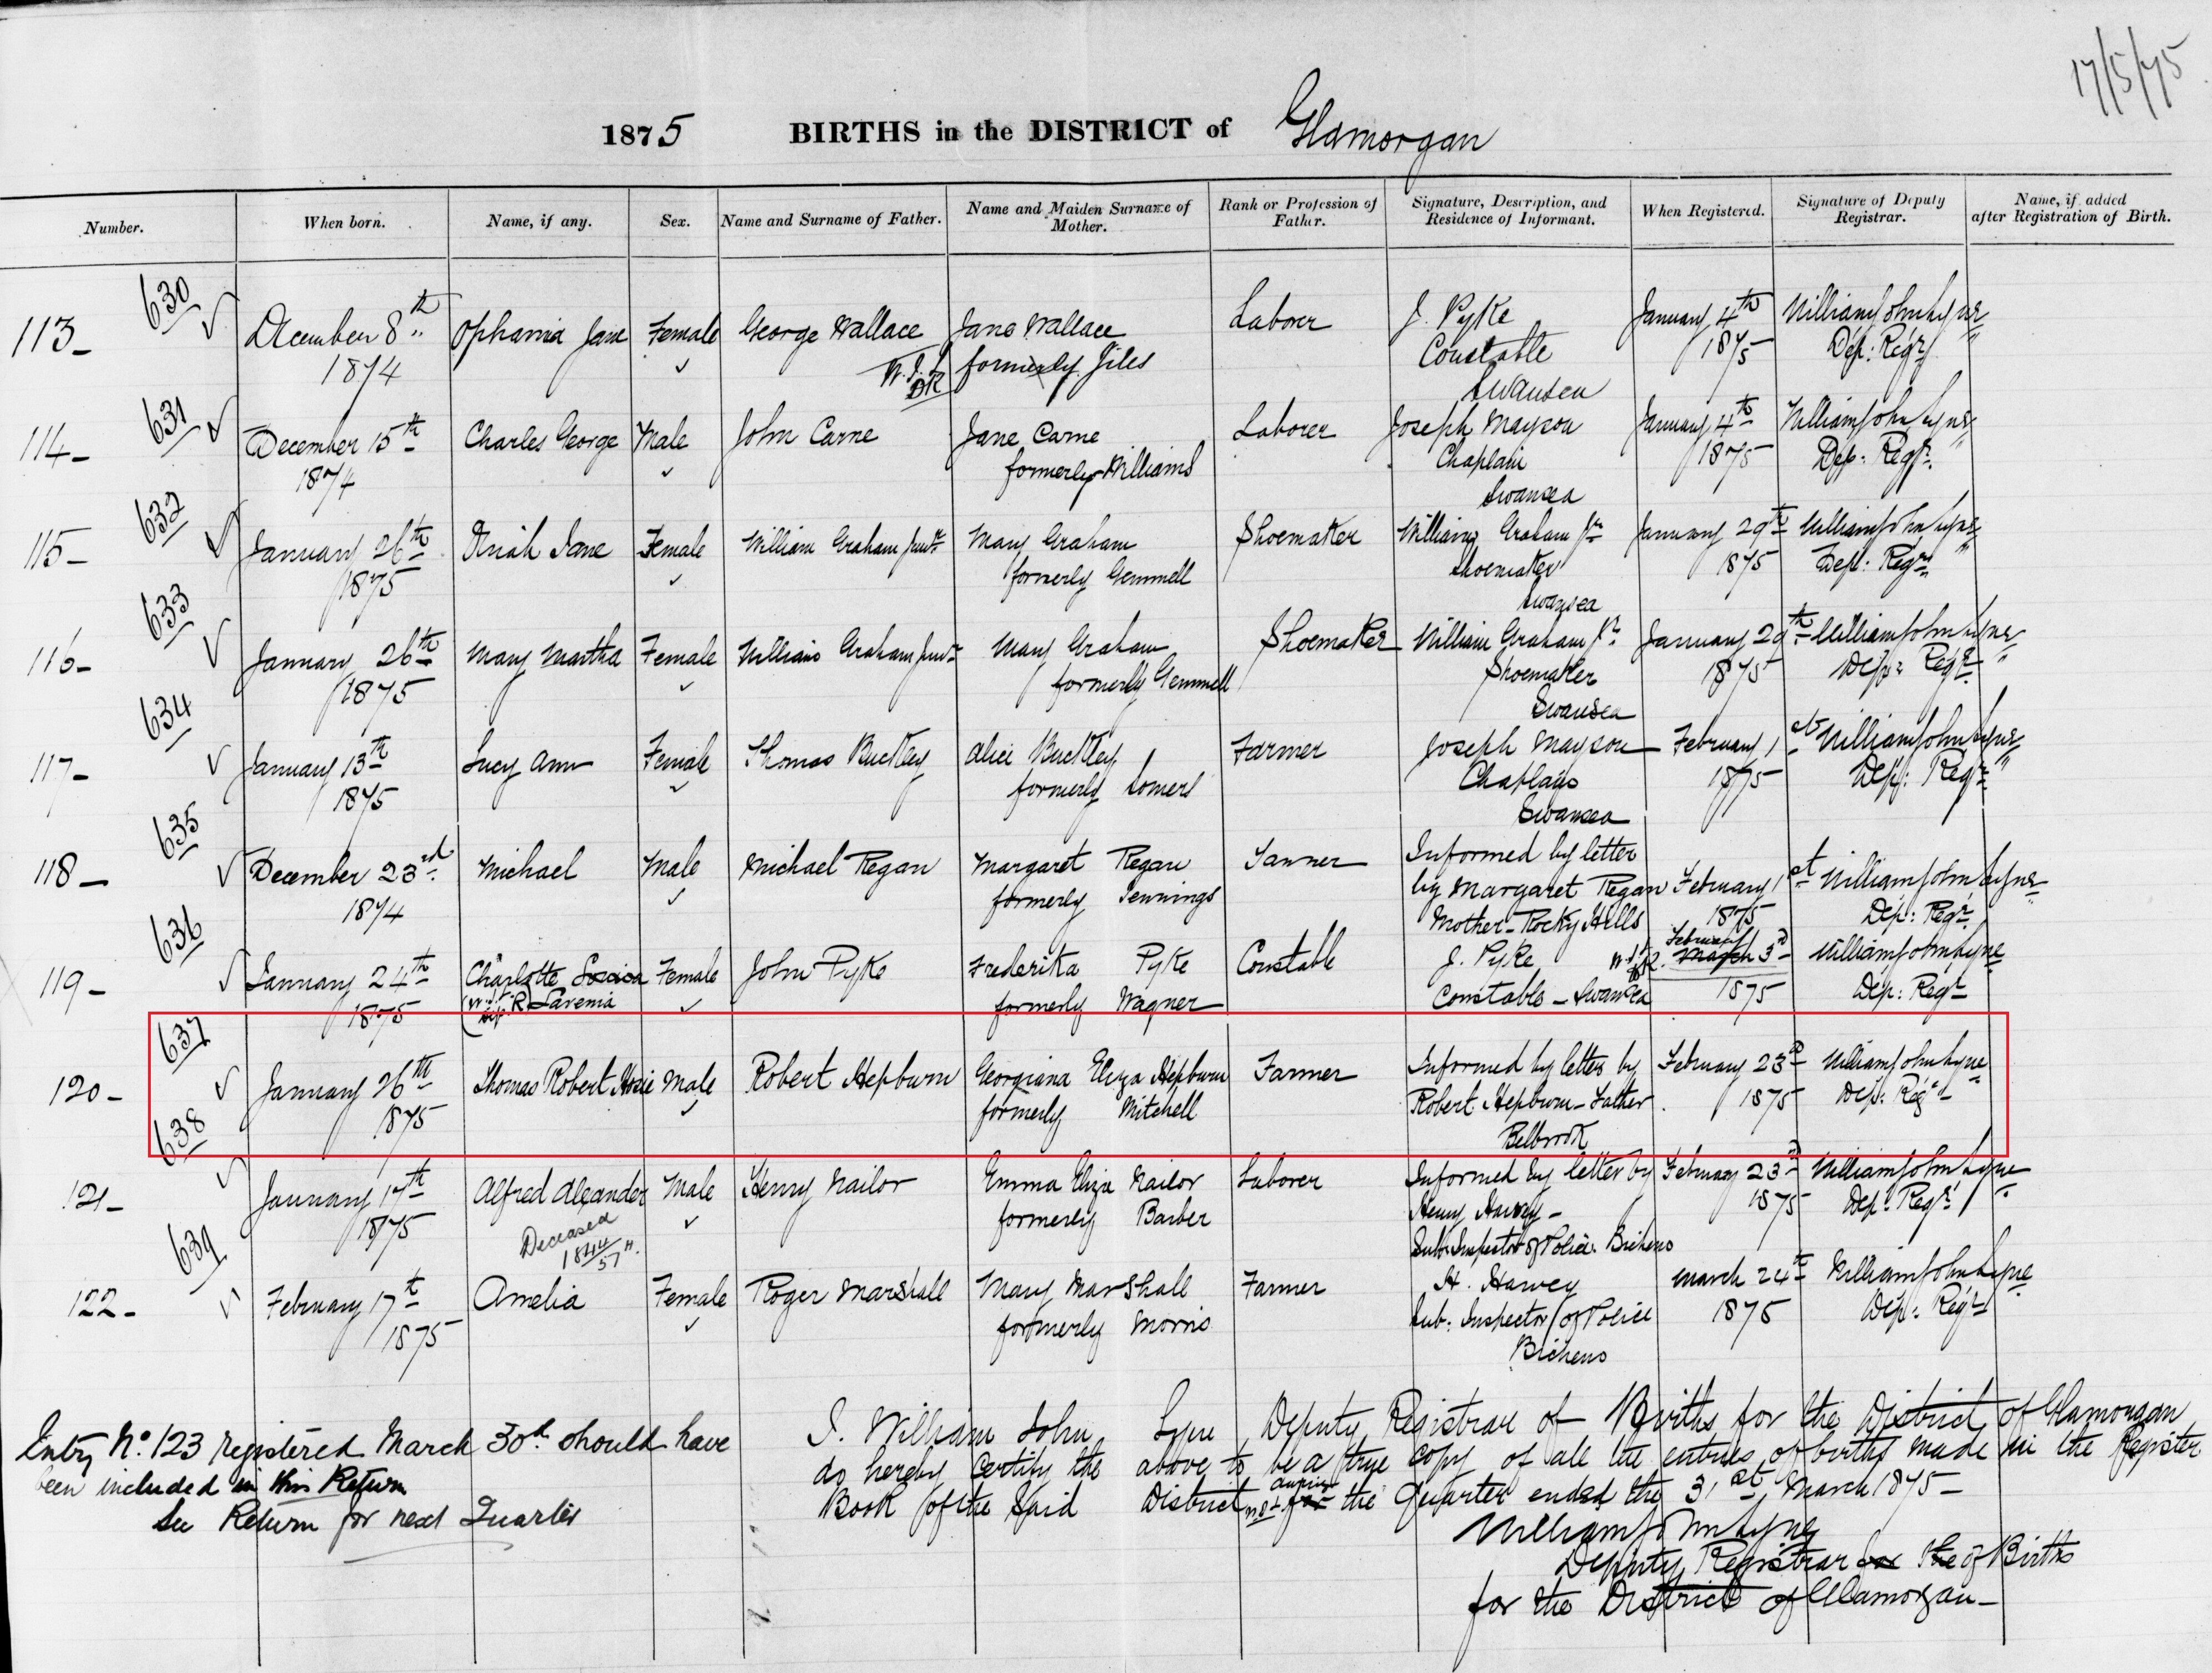 17/5/75
1875 BIRTHS in the DISTRICT of Glamorgan
Number. When born. Name, if any. Sex. Name and Surname of Father. Name and Maiden Surname of Mother. Rank or Profession of Father. Signature, Description, and Residence of Informant. When Registered. Signature of Deputy Registrar. Name, if added after Registration of Birth.
630
113 – December 8th Ophania Jane Female George Wallace Jane Wallace Laborer J. Pyke January 4th William John Lyne
1874 W.J.L. DR formerly Giles Constable 1875 Dep: Regr
Swansea
631
114 – December 15th Charles George Male John Carne Jane Carne Laborer Joseph Mayson January 4th William John Lyne
1874 formerly Williams Chaplain 1875 Dep: Regr.
Swansea
632
115 – January 26th Jane Female William Graham Junr. Mary Graham Shoemaker William Graham Jr January 29th William John Lyne
1875 formerly Gemmell Shoemaker 1875 Dep: Regr.
Swansea
633
116 – January 26th Mary Martha Female William Graham Junr. Mary Graham Shoemaker William Graham Jr January 29th William John Lyne
1875 formerly Gemmell Shoemaker 1875 Dep: Regr.
Swansea
634
117 – January 13th Lucy Ann Female Thomas Buckley Alice Buckley Farmer Joseph Mayson February 1st William John Lyne
1875 formerly Somers Chaplain 1875 Dep: Regr.
Swansea
635
118 – December 23rd Michael Male Michael Regan Margaret Regan Tanner Informed by letter
1874 formerly Jennings by Margaret Regan February 1st William John Lyne
Mother – Rocky Hills 1875 Dep: Regr.
636
February
119 – January 24th Charlotte Female John Pyke Frederika Pyke Constable J. Pyke W.J.L. DR. March 3rd William John Lyne
1875 (W.J.L. Dep. R Lavenia formerly Wagner Constable – Swansea 1875 Dep: Regr
637
120 – January 26th Thomas Robert Hosie Male Robert Hepburn Georgiana Eliza Hepburn Farmer Informed by letter by February 23rd William John Lyne
1875 formerly Mitchell Robert Hepburn – Father 1875 Dep: Regr
Belbrook
638
121 – January 17th Alfred Alexander Male Henry Nailor Emma Eliza Nailor Laborer Informed by letter by February 23rd William John Lyne
1875 Deceased formerly Barber Henry Harvey – 1875 Dep: Regr
Sub: Inspector of Police Bicheno
639
122 – February 17th Amelia Female Roger Marshall Mary Marshall Farmer H. Harvey March 24th William John Lyne
1875 formerly Morris Sub: Inspector of Police 1875 Dep: Regr
Bicheno
Entry No. 123 registered March 30th should have
been included in this Return
See Return for next Quarter
I. William John Lyne Deputy Registrar of Births for the District of Glamorgan
do hereby certify the above to be a true copy of all the entries of births made in the Register
Book of the Said District during the Quarter ended the 31st March 1875 –
William John Lyne
Deputy Registrar for the of Births
for the District of Glamorgan –